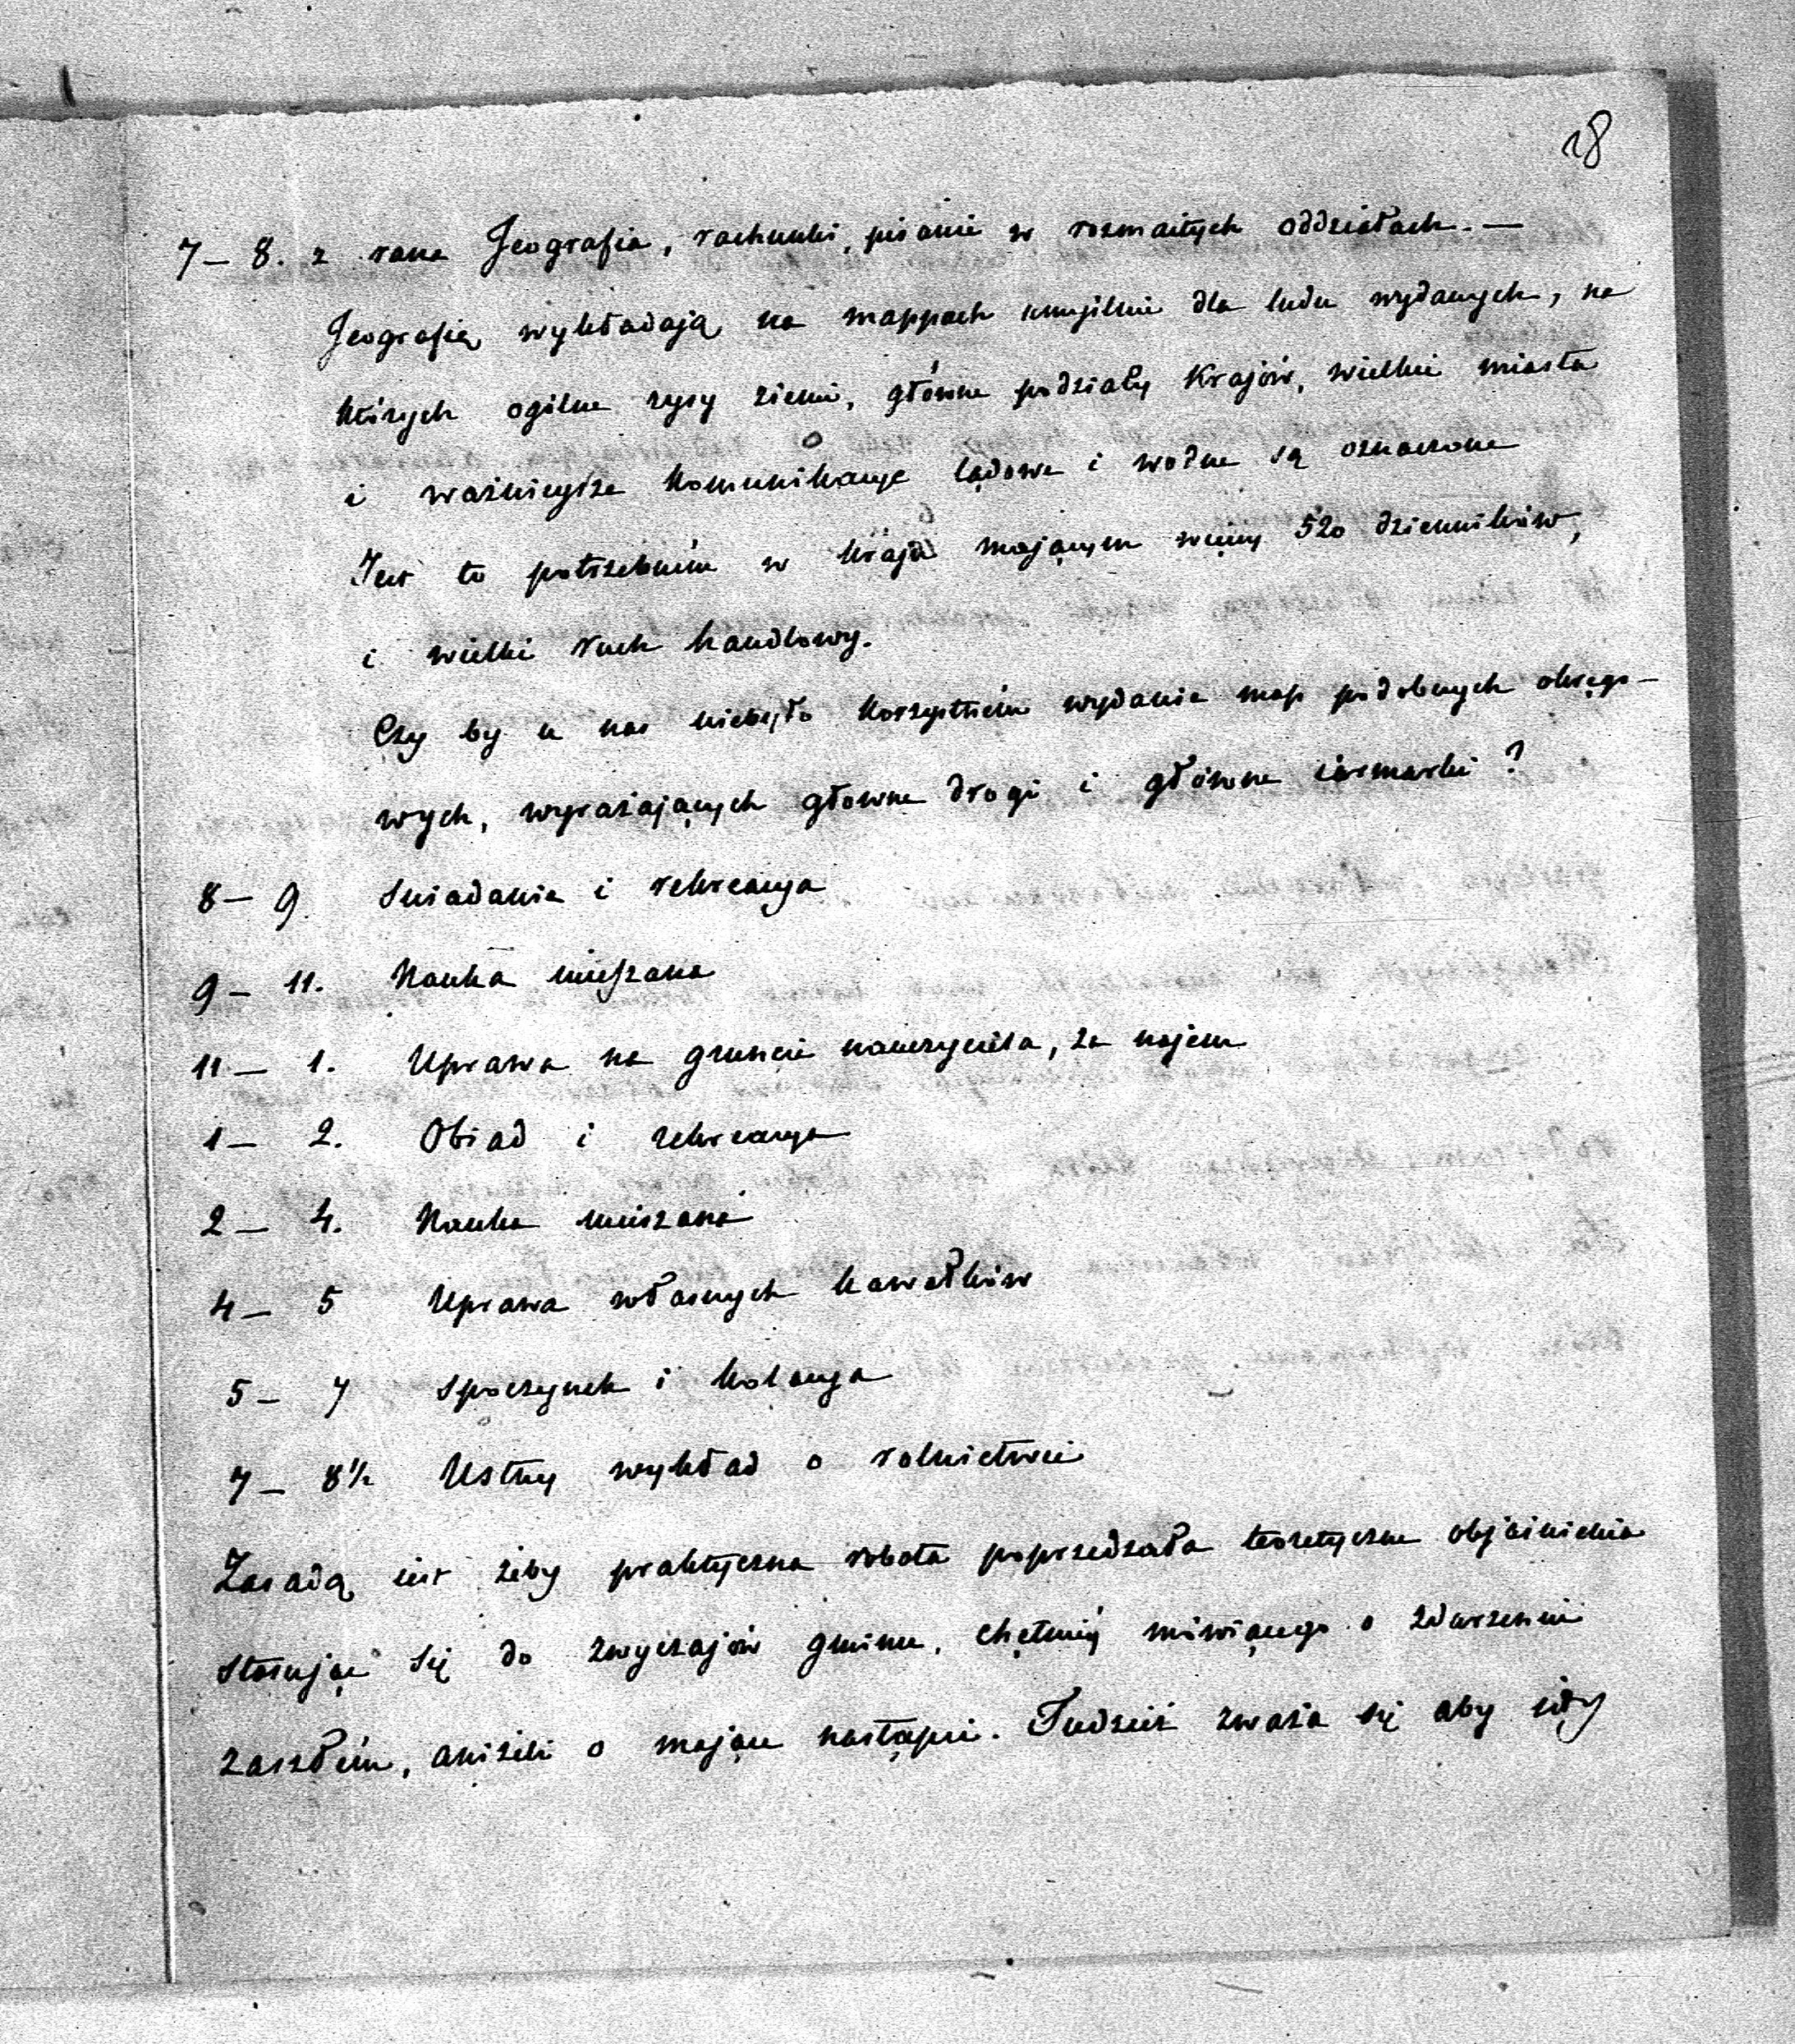 18
7 – 8. z rana Jeografia, rachunki, pisanie w rozmaitych oddziałach. —
Jeografią wykładają na mappach umyślnie dla ludu wydanych, na
których ogólne rysy ziemi, główne podziały krajów, wielkie miasta
i ważniejsze komunikacye lądowe i wodne są oznaczone
Jest to potrzebném w kraju mającym więcej 520 dzienników,
i wielki ruch handlowy.
Czy by u nas niebyło korzystném wydanie map podobnych okręgo-
wych, wyrażających głowne drogi i główne iarmarki?
8 – 9. Sniadanie i rekreacya
9 – 11. Nauka mieszana
11 – 1. Uprawa na gruncie nauczyciela, za najem
1 – 2. Obiad i rekreacya
2 – 4. Nauka mieszana
4 – 5 Uprawa własnych kawałków
5 – 7 Spoczynek i kolacya
7 – 8½ Ustny wykład o rolnictwie
Zasadą iest żeby praktyczna robota poprzedzała teoretyczne objaśnienia
stosując się do zwyczajów gminu, chętniéj mówiącego o zdarzeniu
zaszłém, aniżeli o mające nastąpić. Tudzież zważa się aby